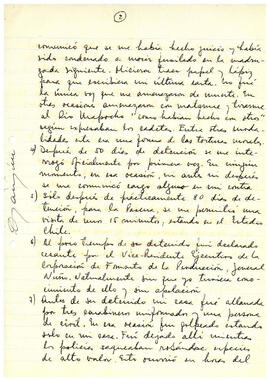 2
comunicó que se me había hecho juicio y había
sido condenado a morir fusilado en la madru-
gada siguiente. Hicieron traer papel y lápiz
para que escribiera un última carta. No fué
la única vez que me amenazaron de muerte. En
otras ocasiones amenazaron con matarme y tirarme
al Río Mapocho "como habían hecho con otros"
según expresaban los cadetes. Entre otras moda-
lidades esta era una forma de las tortura moral.
Después de 50 días de detención se me inte-
rrogó oficialmente por primera vez. En ningún
momento, en esa ocasión, ni antes ni después
se me comunicó cargo alguno en mi contra.
Sólo después de prácticamente 80 días de de-
tención para la Pascua, se me permitió una
visita de unos 15 minutos, estando en el Estadio
Chile.
Al poco tiempo de ser detenido fui declarado
cesante por el Vice-Presidente Ejecutivo de la
Corporación de Fomento de la Producción, General
Nuño. Naturalmente sin que yo tuviera conoci-
miento de ello y sin apelación.
Antes de ser detenido mi casa fué allanada
por tres carabineros uniformados y una persona
de civil. En esa ocasión fui golpeado estando
solo en mi casa. Fui dejado allí mientras
los policías saqueaban robándose especies
de alto valor. Esto ocurrió en horas del